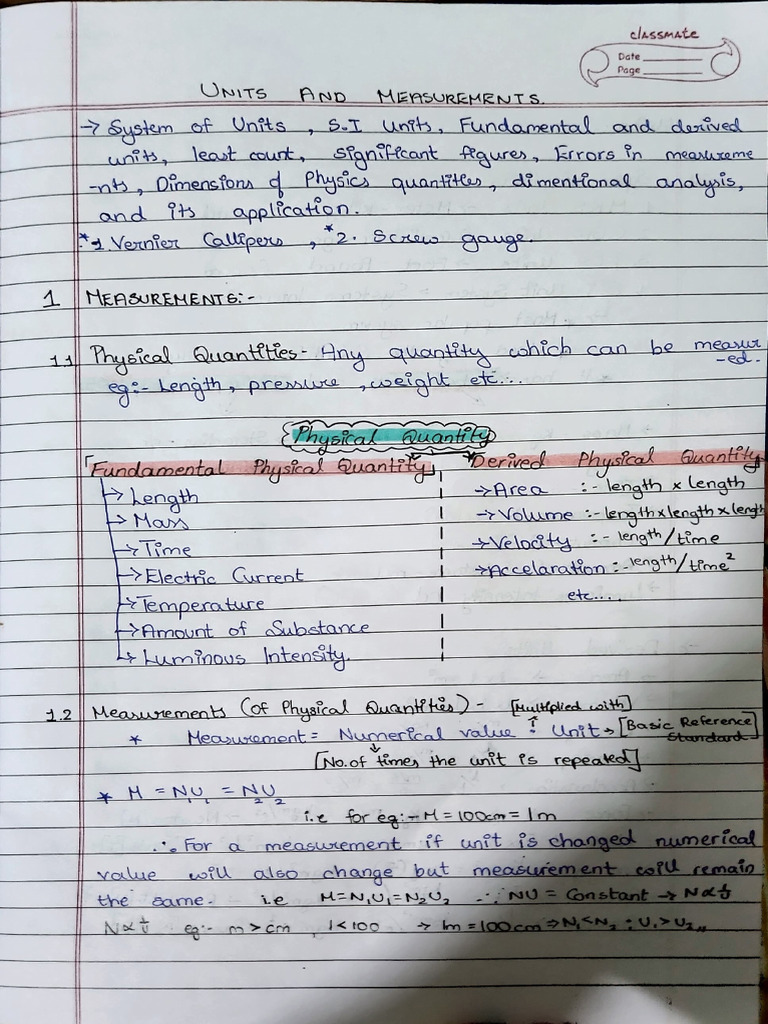 classmate
Date
Page
UNITS AND MEASUREMENTS.
→ System of Units, S.I units, Fundamental and derived
units, least count, significant figures, Errors in measureme
-nts, Dimensions of Physics quantities, dimentional analysis,
and its application.
*1. Vernier Callipers, *2. Screw gauge.
1 MEASUREMENTS:-
1.1 Physical Quantities- Any quantity which can be measur
-ed.
eg:- Length, pressure, weight etc...
Physical Quantity
Fundamental Physical Quantity
→ Length
→ Mass
→ Time
→ Electric Current
→ Temperature
→ Amount of Substance
→ Luminous Intensity.
Derived Physical Quantity
→ Area :- length x length
→ Volume :- length x length x length
→ Velocity :- length/time
→ Accelaration :- length/time²
etc....
1.2 Measurements (of Physical Quantities) - [Multiplied with]
* Measurement = Numerical value : Unit → [Basic Reference
Standard]
[No. of times the unit is repeated]
* M = N₁U₁ = N₂U₂
i.e for eg:- M = 100cm = 1m
∴ For a measurement if unit is changed numerical
value will also change but measurement will remain
the same. i.e M = N₁U₁ = N₂U₂ ∴ NU = Constant → N ∝ 1/U
N ∝ 1/U eg:- m > cm 1 < 100 → 1m = 100cm ⇒ N₁ < N₂ ; U₁ > U₂,,